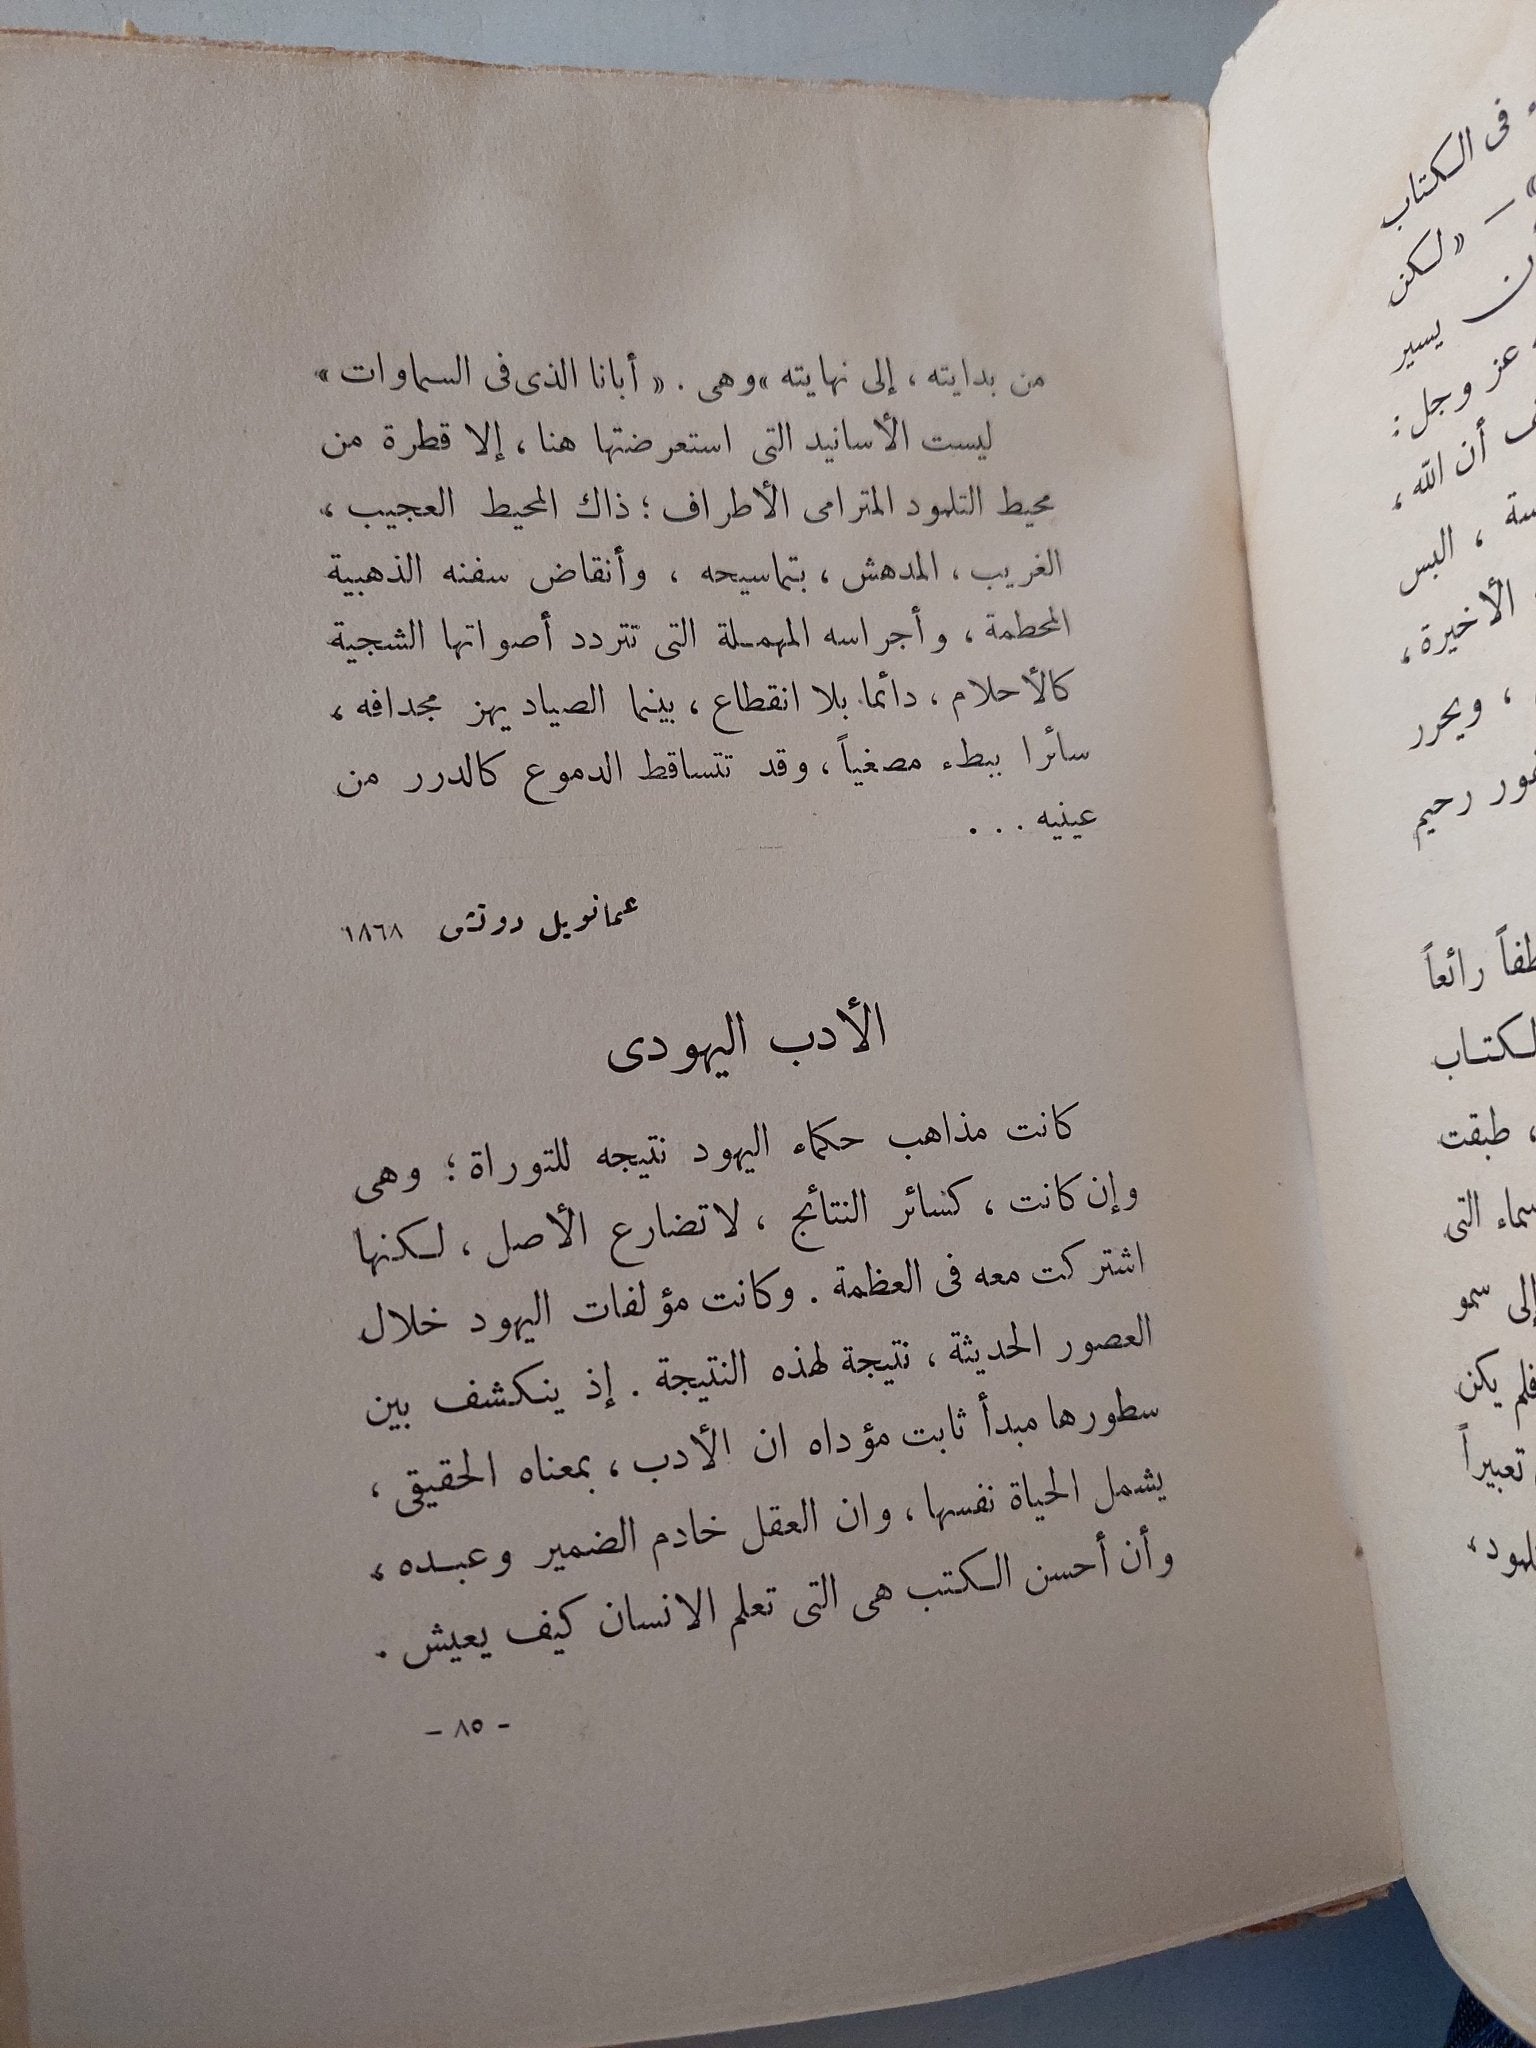 من بدايته ، إلى نهايته » وهى . « أبانا الذى فى السماوات »
ليست الأسانيد التى استعرضتها هنا ، إلا قطرة من
محيط التلمود المترامى الأطراف ؛ ذاك المحيط العجيب ،
الغريب ، المدهش ، بتماسيحه ، وأنقاض سفنه الذهبية
المحطمة ، وأجراسه المهملة التى تتردد أصواتها الشجية
كالأحلام ، دائما بلا انقطاع ، بينما الصياد يهز مجدافه ،
سائرا ببطء مصغياً ، وقد تتساقط الدموع كالدرر من
عينيه . . .
عمانويل دوتش ١٨٦٨
الأدب اليهودى
كانت مذاهب حكماء اليهود نتيجه للتوراة ؛ وهى
وإن كانت ، كسائر النتائج ، لا تضارع الأصل ، لكنها
اشتركت معه فى العظمة . وكانت مؤلفات اليهود خلال
العصور الحديثة ، نتيجة لهذه النتيجة . إذ ينكشف بين
سطورها مبدأ ثابت مؤداه ان الأدب ، بمعناه الحقيقى ،
يشمل الحياة نفسها ، وان العقل خادم الضمير وعبده ،
وأن أحسن الكتب هى التى تعلم الانسان كيف يعيش .
- ٨٥ -
فى الكتاب
« لكن
يسير
عز وجل :
أن الله ،
، البس
الأخيرة ،
، ويحرر
رحيم
رائعاً
الكتاب
، طبقت
التى
إلى سمو
فلم يكن
تعبيراً